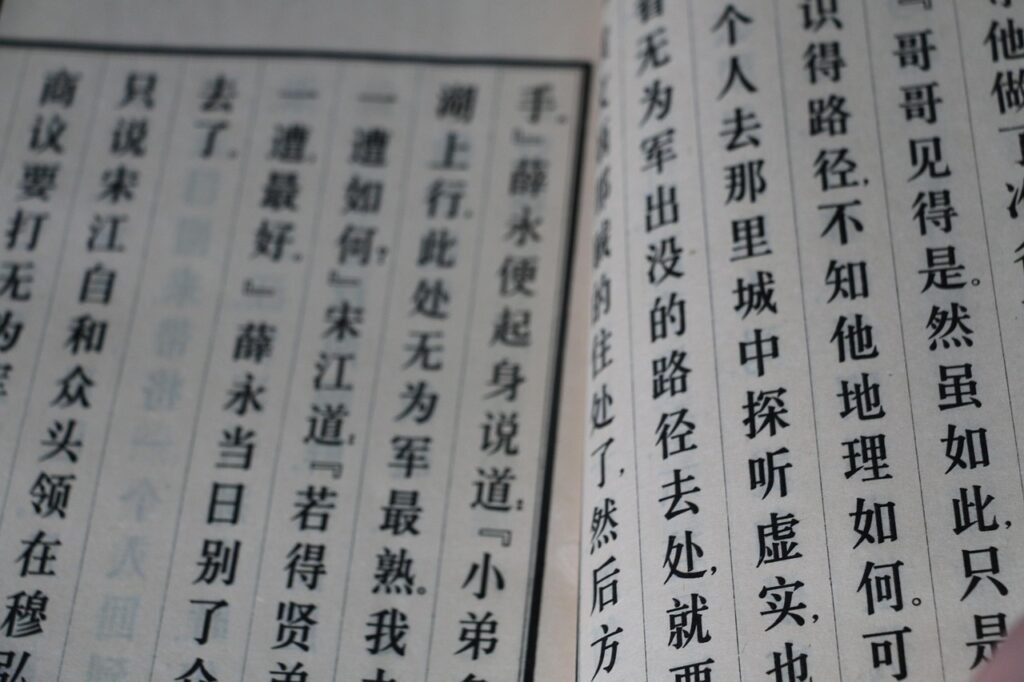 他做了
『哥哥见得是。然虽如此，只是
识得路径，不知他地理如何。可
个人去那里城中探听虚实，也
看无为军出没的路径去处，就要
的住处了，然后方
手。』薛永便起身说道：『小弟
湖上行，此处无为军最熟。我
一遭如何？』宋江道：『若得贤弟
一遭，最好。』薛永当日别了
去了。
只说宋江自和众头领在穆弘
商议要打无为军